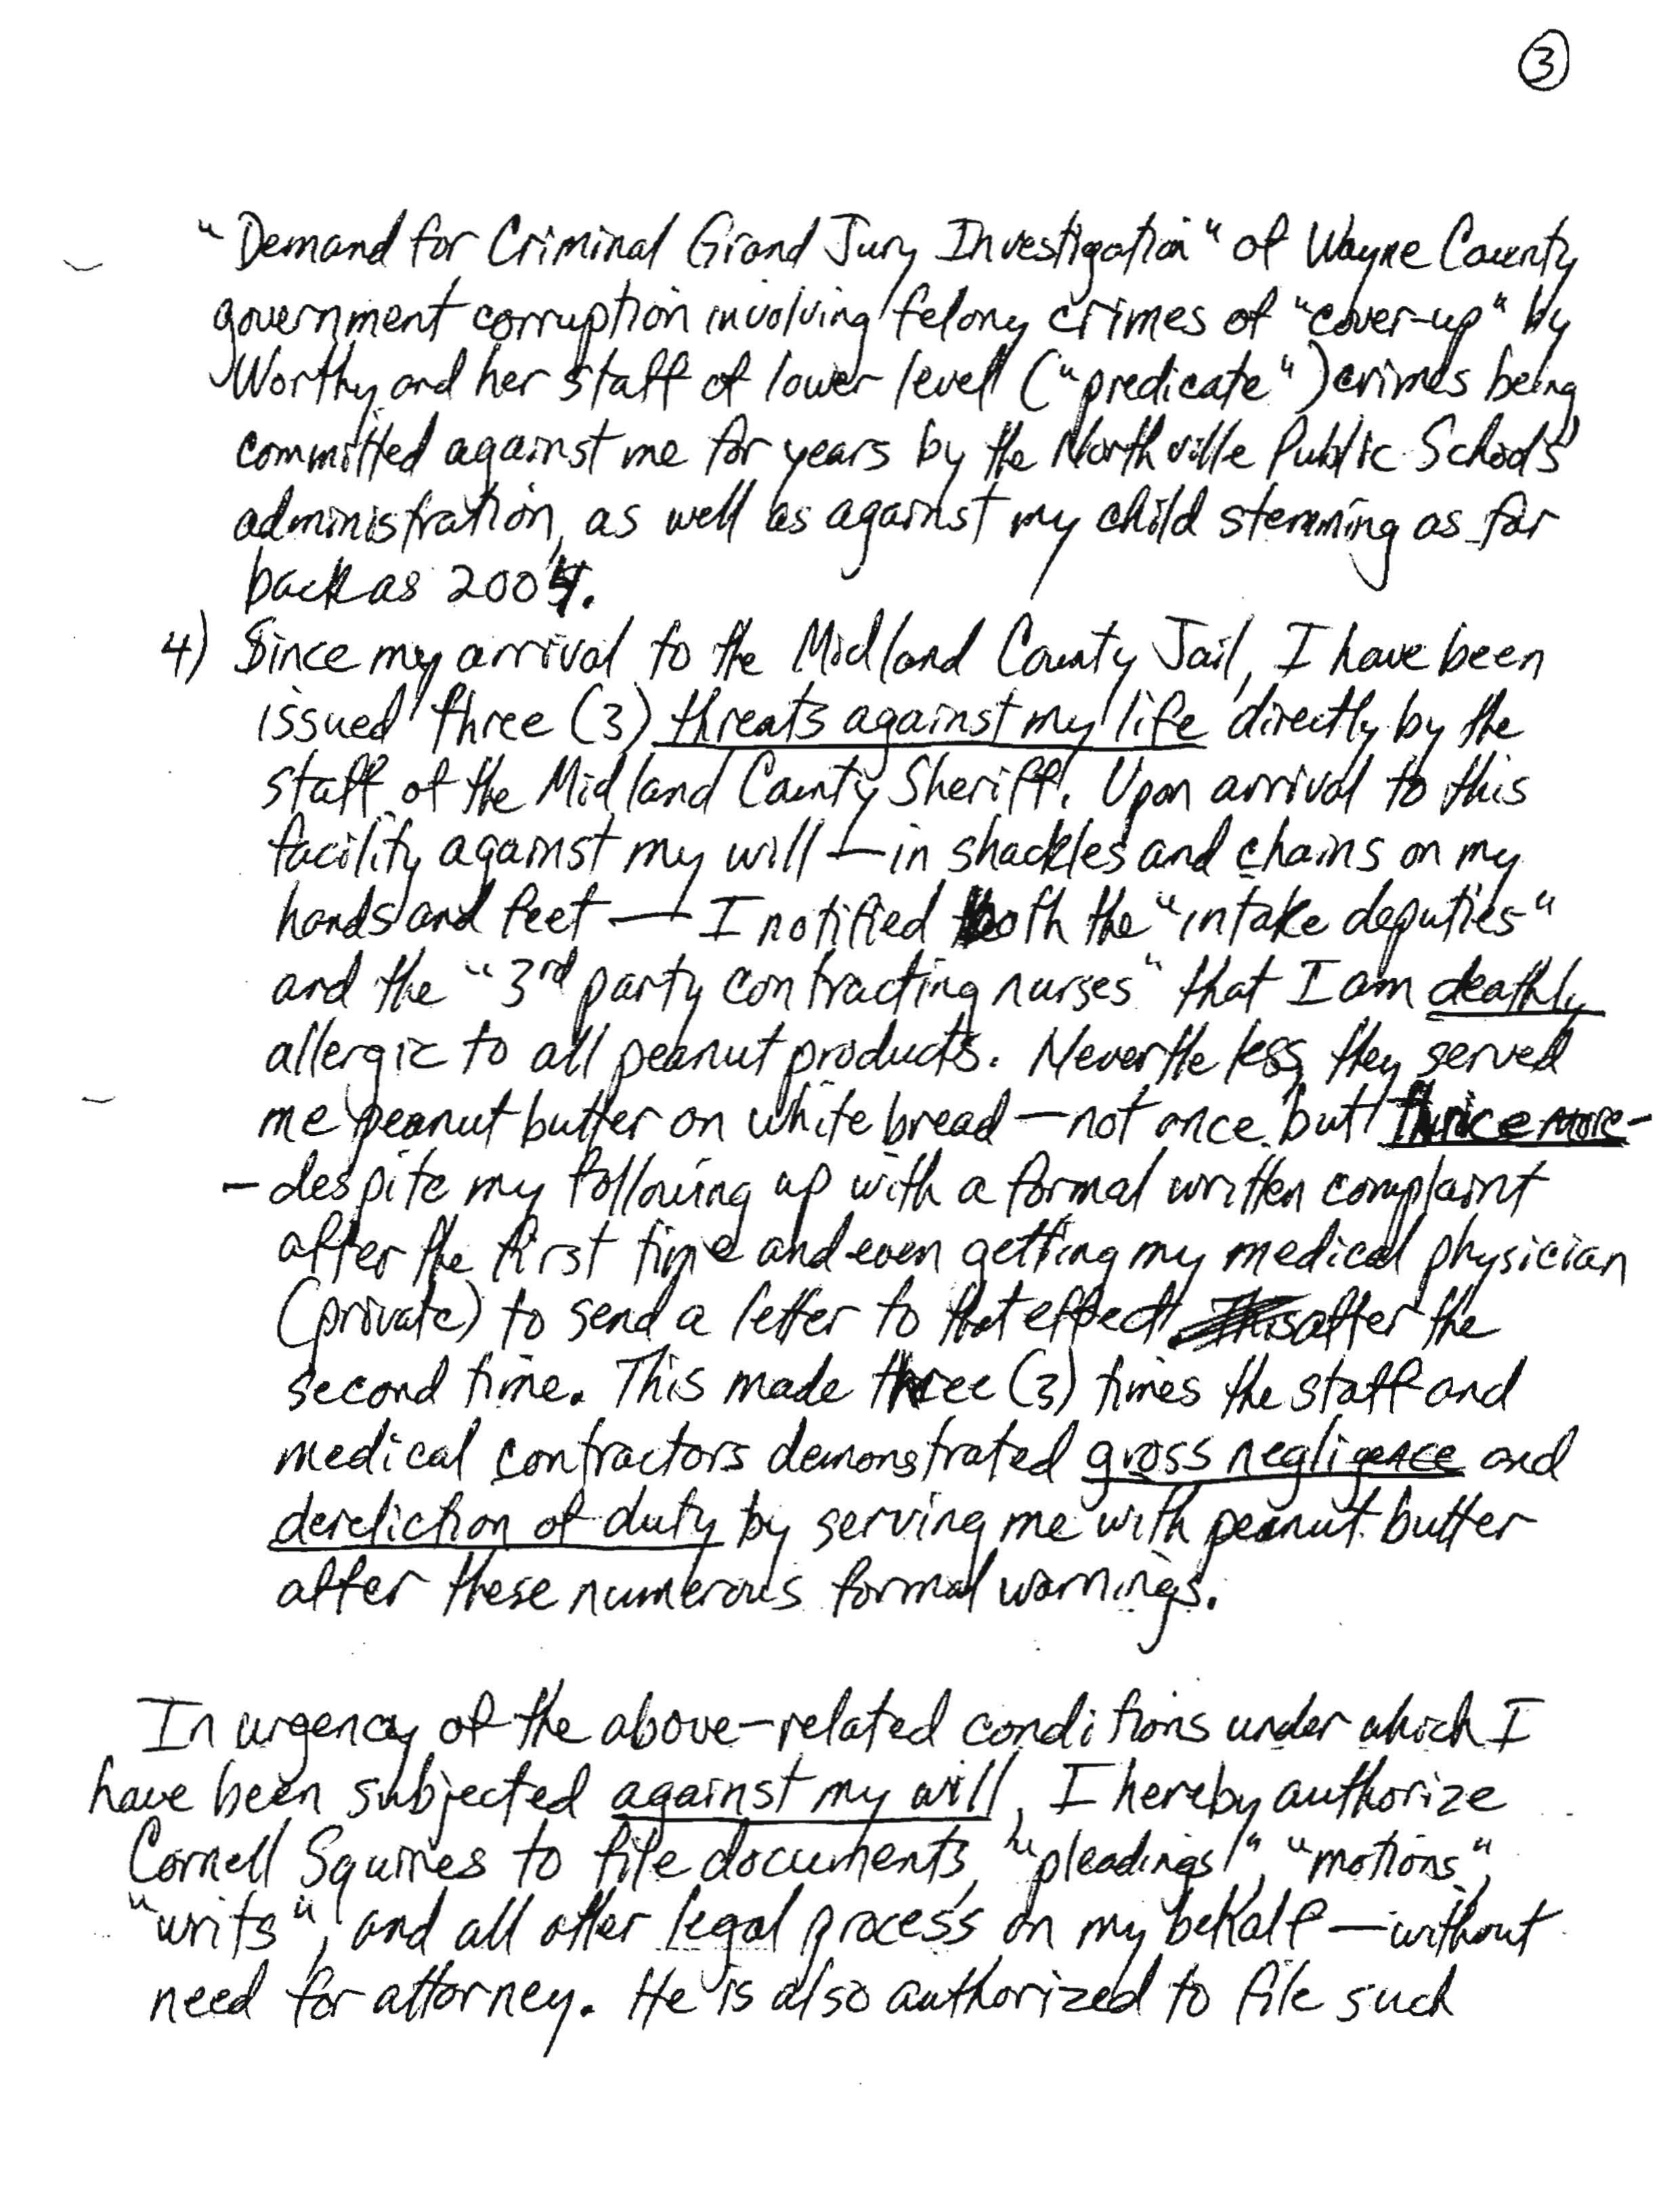 3
"Demand for Criminal Grand Jury Investigation" of Wayne County
government corruption involving felony crimes of "cover-up" by
Worthy and her staff of lower level ("predicate") crimes being
committed against me for years by the Northville Public Schools
administration, as well as against my child stemming as far
back as 2004.
4) Since my arrival to the Midland County Jail, I have been
issued three (3) threats against my life directly by the
staff of the Midland County Sheriff. Upon arrival to this
facility against my will — in shackles and chains on my
hands and feet — I notified both the "intake deputies"
and the "3rd party contracting nurses" that I am deathly
allergic to all peanut products. Nevertheless, they served
me peanut butter on white bread — not once, but twice more -
- despite my following up with a formal written complaint
after the first time and even getting my medical physician
(private) to send a letter to that effect after the
second time. This made three (3) times the staff and
medical contractors demonstrated gross negligence and
dereliction of duty by serving me with peanut butter
after these numerous formal warnings.
In urgency of the above-related conditions under which I
have been subjected against my will, I hereby authorize
Cornell Squires to file documents, "pleadings", "motions",
"writs", and all other legal process on my behalf — without
need for attorney. He is also authorized to file such